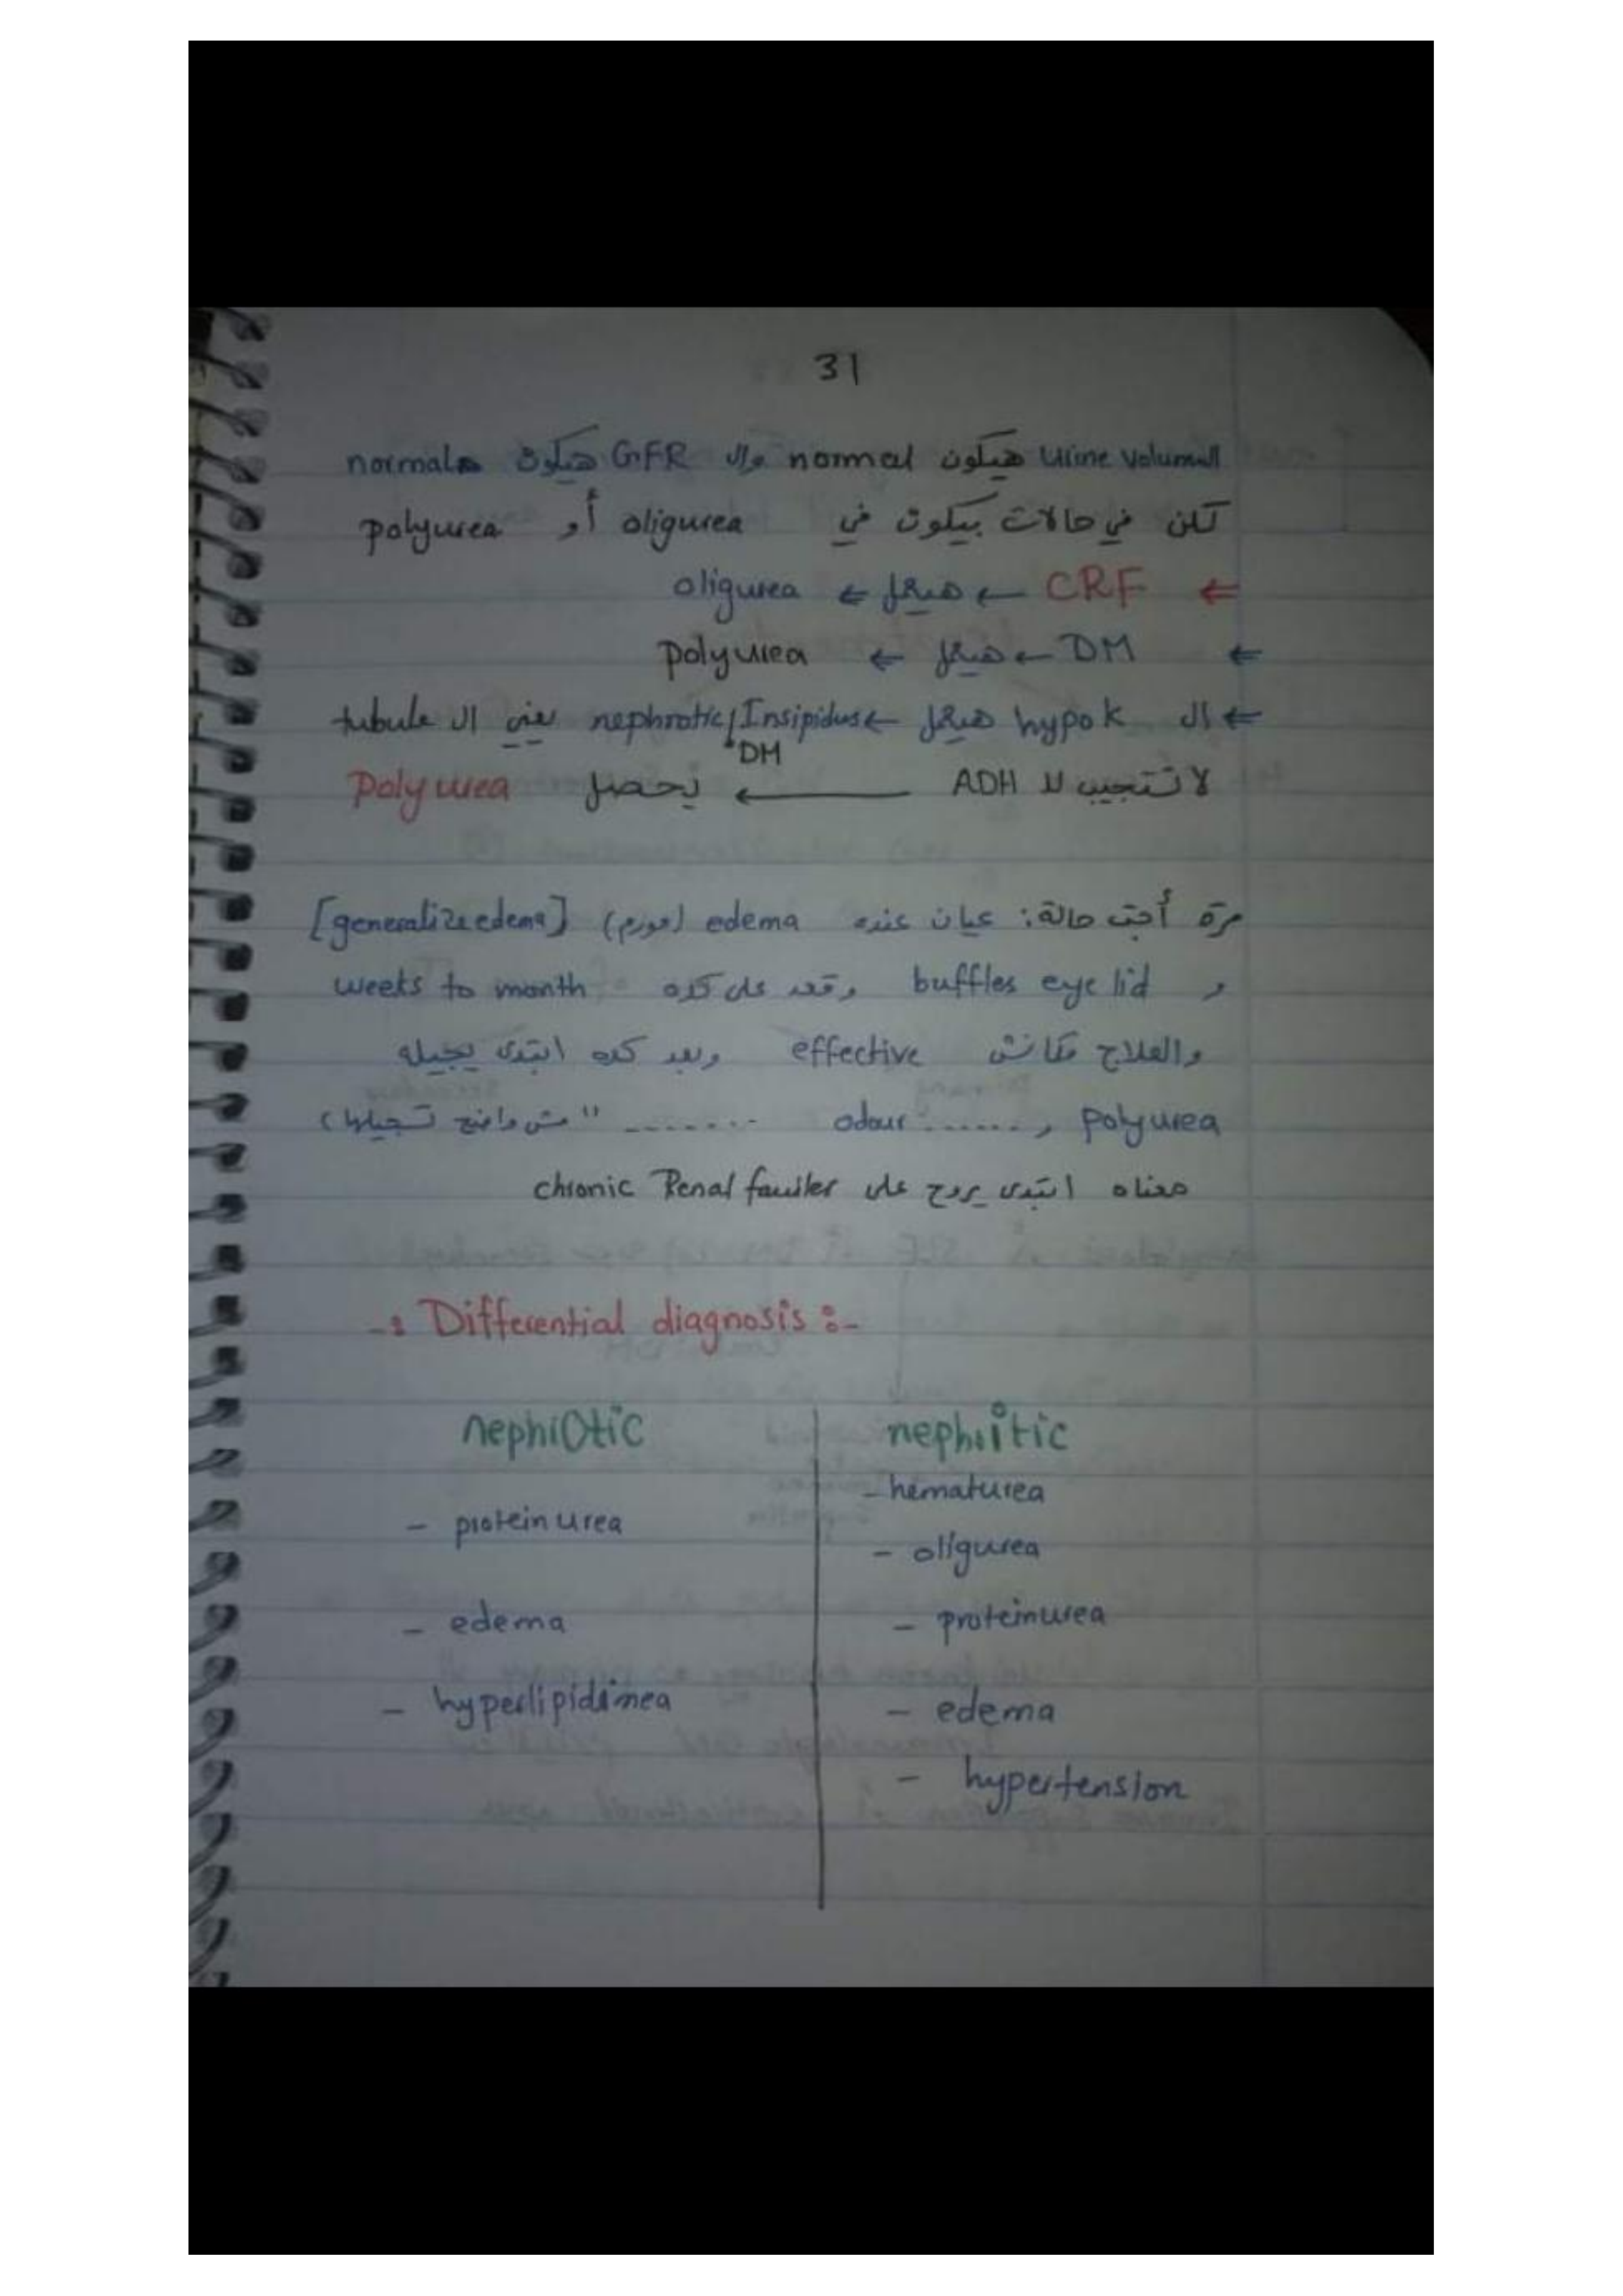 31
الـ urine volume هيكون normal وال GFR هيكون normal
لكن في حالات بيكون في oligurea أو polyurea
⇐ CRF ← هيعمل ⇐ oligurea
⇐ DM ← هيعمل ⇐ polyurea
⇐ ال hypo k هيعمل ← nephrotic Insipidus يعني ال tubule
DM
لا تستجيب لل ADH ← يحصل polyurea
مرة أجت حالة: عيان عنده edema (مورم) [generalize edema]
و buffles eye lid وقعد على كده weeks to month
والعلاج مكانش effective وبعد كده ابتدى يجيله
polyurea و ...... odour ........ " مش واضح تسجيلها)
معناه ابتدى يروح على chronic Renal fauiler
-: Differential diagnosis :-
nephrotic
nephritic
- hematurea
- protein urea
- oligurea
- proteinurea
- edema
- hyperlipidimea
- edema
- hypertension